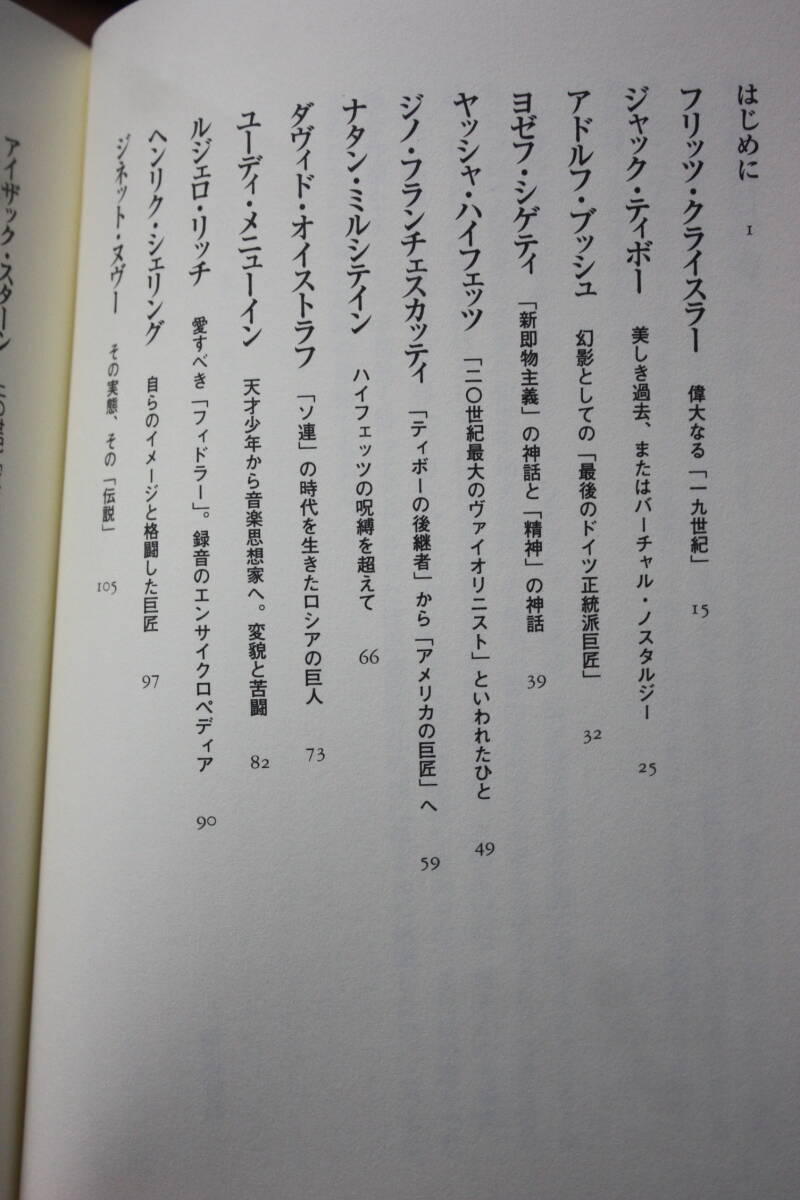 はじめに 1
フリッツ・クライスラー 偉大なる「一九世紀」 15
ジャック・ティボー 美しき過去、またはバーチャル・ノスタルジー 25
アドルフ・ブッシュ 幻影としての「最後のドイツ正統派巨匠」 32
ヨゼフ・シゲティ 「新即物主義」の神話と「精神」の神話 39
ヤッシャ・ハイフェッツ 「二〇世紀最大のヴァイオリニスト」といわれたひと 49
ジノ・フランチェスカッティ 「ティボーの後継者」から「アメリカの巨匠」へ 59
ナタン・ミルシテイン ハイフェッツの呪縛を超えて 66
ダヴィド・オイストラフ 「ソ連」の時代を生きたロシアの巨人 73
ユーディ・メニューイン 天才少年から音楽思想家へ。変貌と苦闘 82
ルジェロ・リッチ 愛すべき「フィドラー」。録音のエンサイクロペディア 90
ヘンリク・シェリング 自らのイメージと格闘した巨匠 97
ジネット・ヌヴー その実態、その「伝説」 105
アイザック・スターン